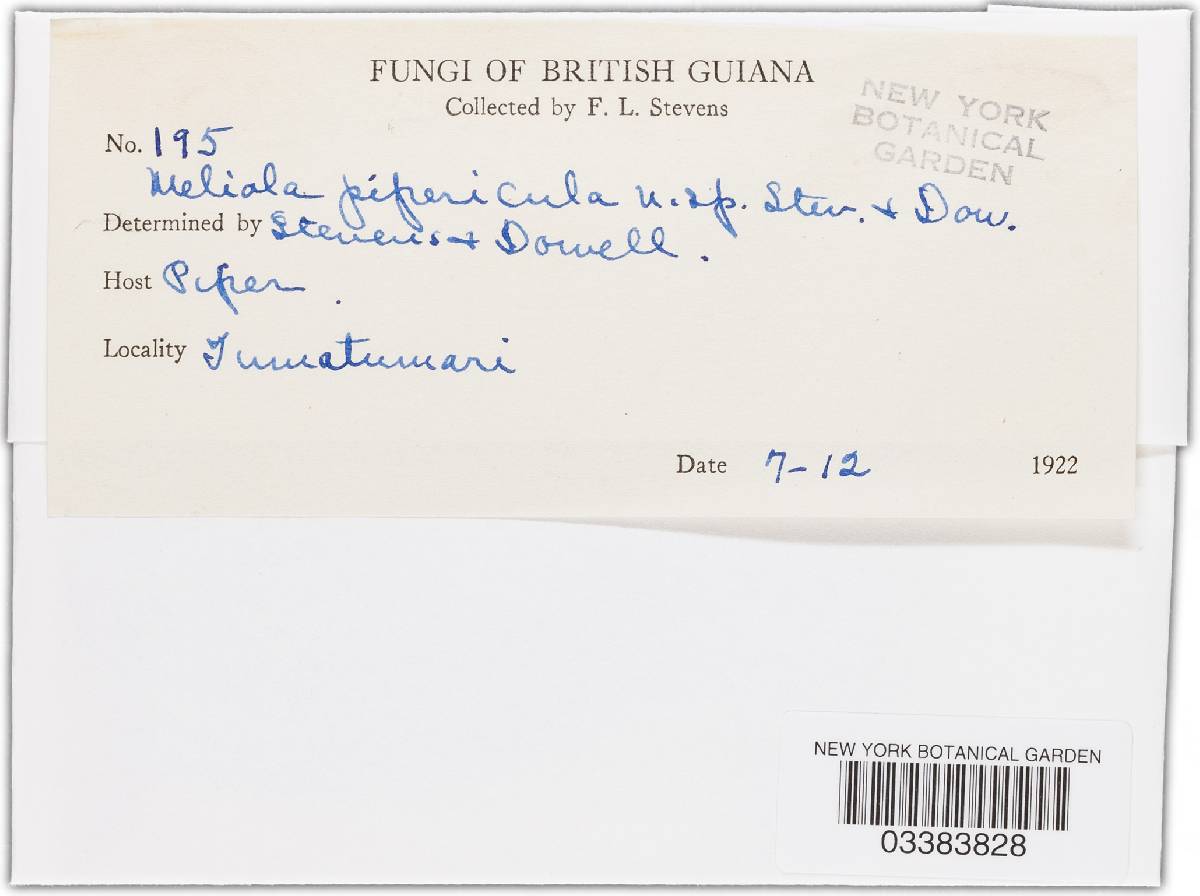 FUNGI OF BRITISH GUIANA
Collected by F. L. Stevens
NEW YORK
BOTANICAL
GARDEN
No. 195
Meliola pipericula n.sp. Stev. & Dow.
Determined by Stevens & Dowell.
Host Piper.
Locality Tumatumari
Date 7-12 1922
NEW YORK BOTANICAL GARDEN
03383828